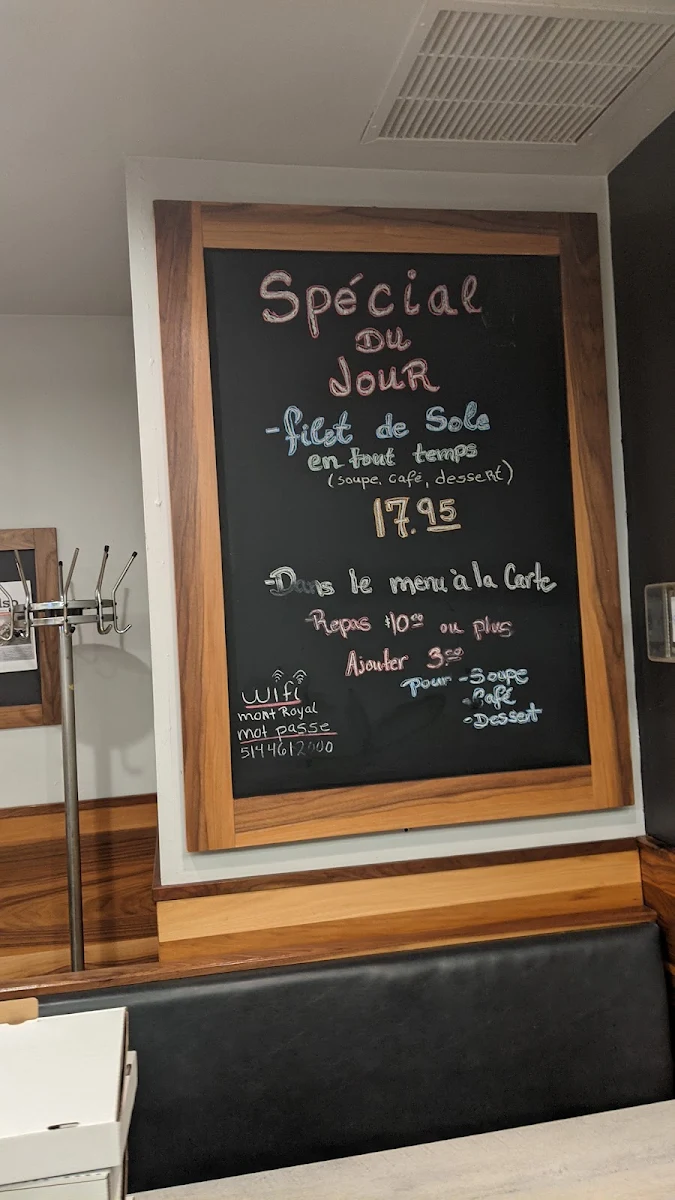 Spécial
DU
JOUR
-filet de Sole
en tout temps
(soupe, café, dessert)
17.95
-Dans le menu à la Carte
-Repas $10.00 ou plus
Ajouter 3.50
Pour -Soupe
-Café
-Dessert
wifi
mont Royal
mot passe
5144612000